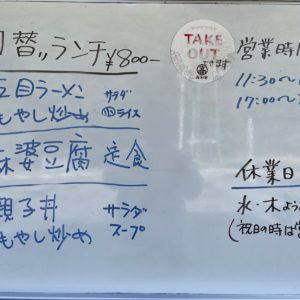 替"ランチ ¥800-
目ラーメン サラダ
もやし炒め 四ライス
婆豆腐 定食
親子丼 サラダ
もやし炒め スープ
TAKE
OUT
できます
営業時
11:30〜
17:00〜
休業日
水・木よう
(祝日の時は営